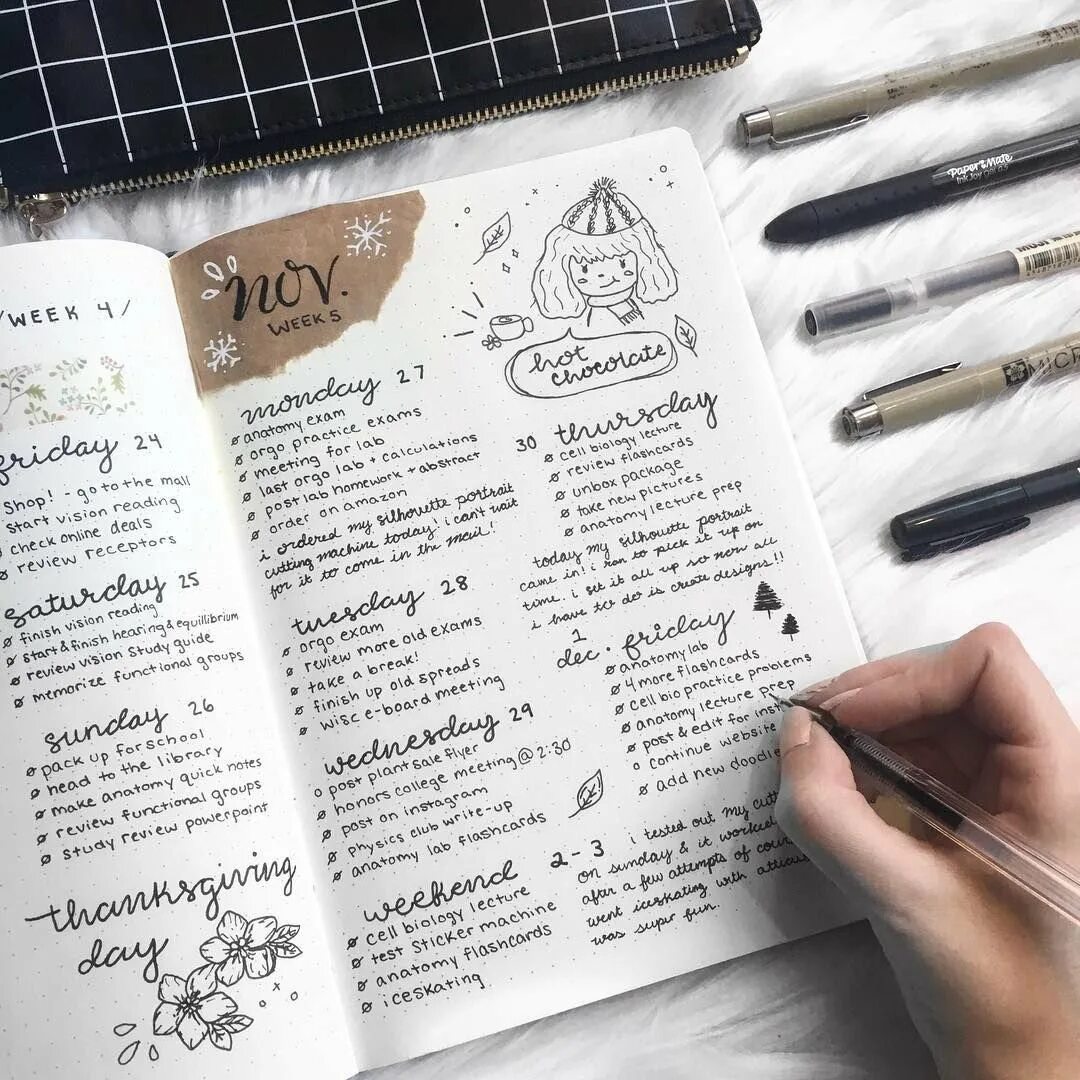 /WEEK 4/
friday 24
Shop! - go to the mall
start vision reading
check online deals
review receptors
saturday 25
finish vision reading
start & finish hearing & equilibrium
review vision study guide
memorize functional groups
sunday 26
pack up for school
head to the library
make anatomy quick notes
review functional groups
study review powerpoint
thanksgiving
day
nov.
WEEK 5
monday 27
anatomy exam
orgo practice exams
meeting for lab
last orgo lab + calculations
post lab homework + abstract
order on amazon
i ordered my silhouette portrait
cutting machine today! i can't wait
for it to come in the mail!
tuesday 28
orgo exam
review more old exams
take a break!
finish up old spreads
wisc e-board meeting
wednesday 29
post plant sale flyer
honors college meeting @ 2:30
post on instagram
physics club write-up
anatomy lab flashcards
weekend
cell biology lecture
test sticker machine
anatomy flashcards
iceskating
hot
chocolate
30 thursday
cell biology lecture
review flashcards
unbox package
take new pictures
anatomy lecture prep
today my silhouette portrait
came in! i ran to pick it up on
time. i set it all up so now all
i have to do is create designs!!
1
dec. friday
anatomy lab
4 more flashcards
cell bio practice problems
anatomy lecture prep
post & edit for inst
continue website
add new doodle
2-3 i tested out my cutt
on sunday & it worked
after a few attempts of cour
went iceskating with
was super fun.
Paper Mate
InkJoy gel 0.5
MICR